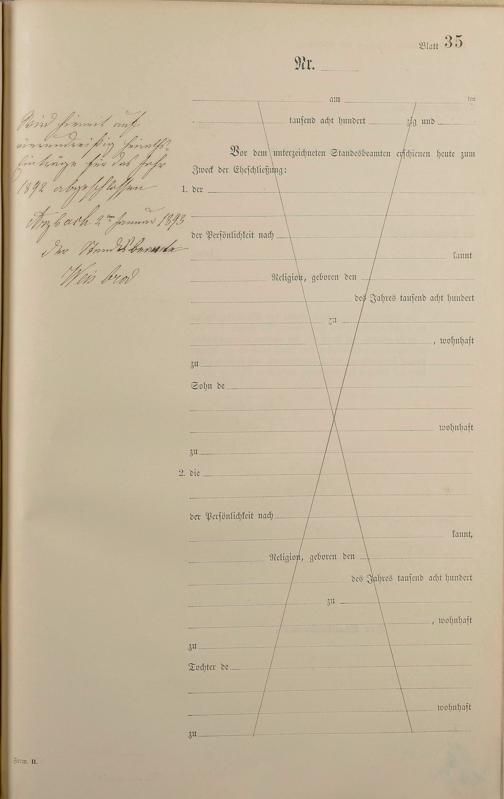 Blatt 35
Nr.
am ten
tausend acht hundert zig und
Vor dem unterzeichneten Standesbeamten erschienen heute zum
Zweck der Eheschließung:
1. der
der Persönlichkeit nach
kannt
Religion, geboren den
des Jahres tausend acht hundert
zu
, wohnhaft
zu
Sohn de
wohnhaft
zu
2. die
der Persönlichkeit nach
kannt,
Religion, geboren den
des Jahres tausend acht hundert
zu
, wohnhaft
zu
Tochter de
wohnhaft
zu
Form. II.
Wird hiermit auf
vierunddreißig Heiraths-
Einträge für das Jahr
1892 abgeschlossen
Arzbach 2ten Januar 1893
Der Standesbeamte
Weisbrod